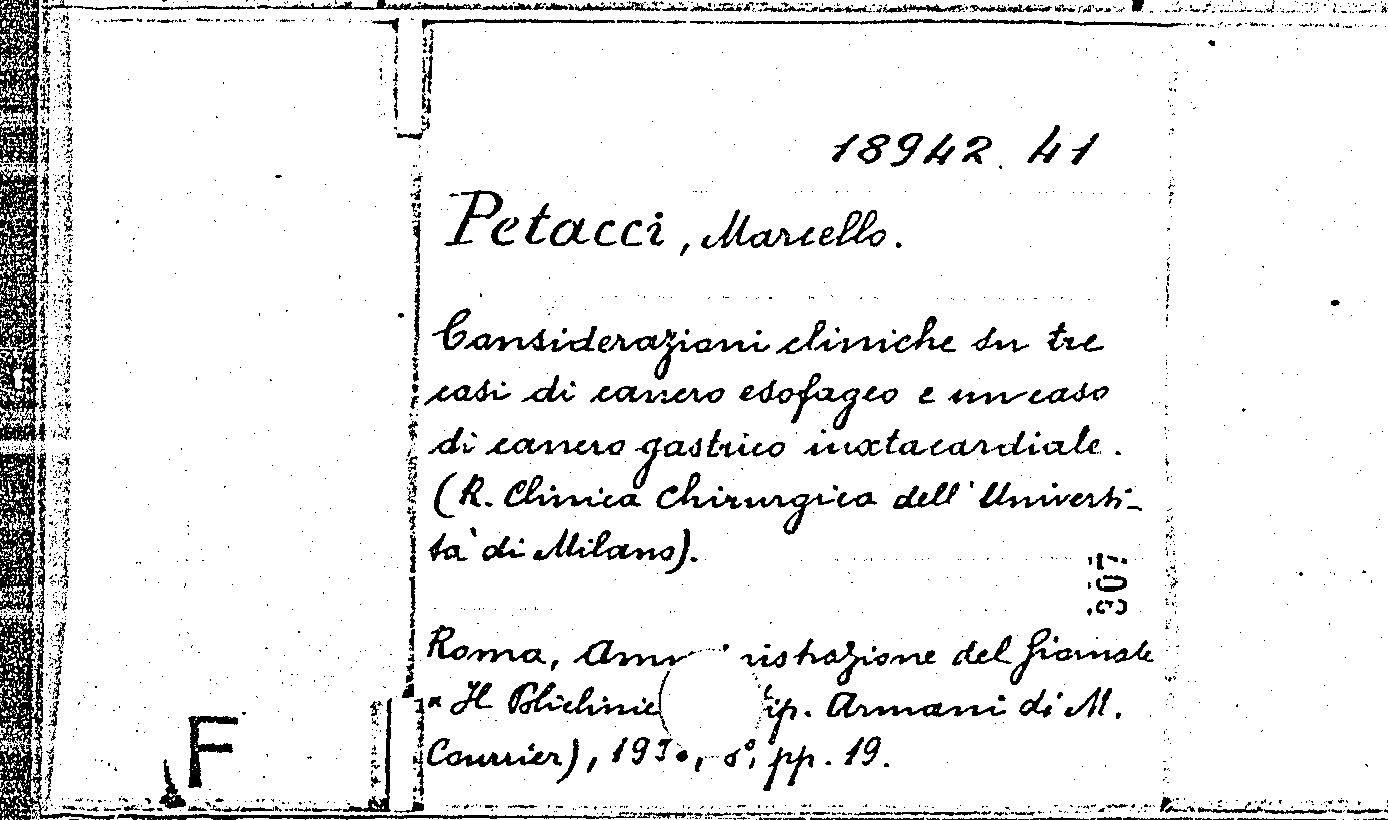 18942. 41
Petacci, Marcello.
Considerazioni cliniche su tre
casi di cancro esofageo e un caso
di cancro gastrico iuxtacardiale.
(R. Clinica Chirurgica dell' Universi-
tà di Milano).
307
Roma, Amm istrazione del Giornale
"Il Policlinic ip. Armani di M.
Courrier), 1930, 8°, pp. 19.
F